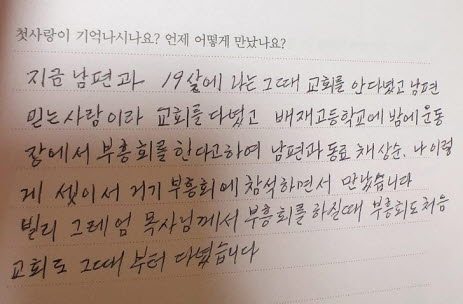 첫사랑이 기억나시나요? 언제 어떻게 만났나요?
지금 남편과 19살에 나는 그때 교회를 안다녔고 남편
믿는사람이라 교회를 다녔고 배재고등학교에 밤에 운동
장에서 부흥회를 한다고하여 남편과 동료 채상순, 나 이렇
게 셋이서 거기 부흥회에 참석하면서 만났습니다
빌리 그레엄 목사님께서 부흥회를 하실때 부흥회도 처음
교회도 그때 부터 다녔습니다